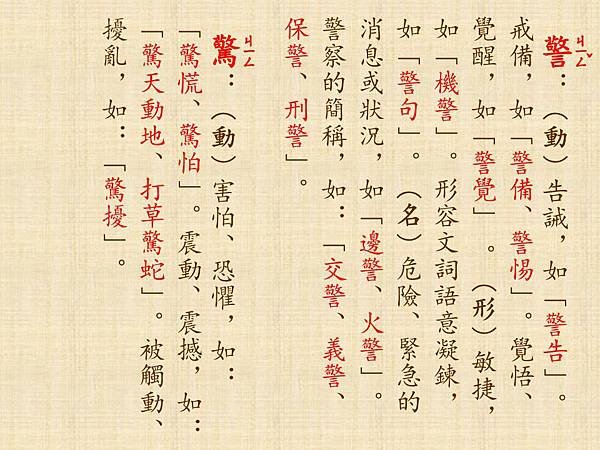 警ㄐㄧㄥˇ：（動）告誡，如「警告」。
戒備，如「警備、警惕」。覺悟、
覺醒，如「警覺」。（形）敏捷，
如「機警」。形容文詞語意凝鍊，
如「警句」。（名）危險、緊急的
消息或狀況，如「邊警、火警」。
警察的簡稱，如：「交警、義警、
保警、刑警」。
驚ㄐㄧㄥ：（動）害怕、恐懼，如：
「驚慌、驚怕」。震動、震撼，如：
「驚天動地、打草驚蛇」。被觸動、
擾亂，如：「驚擾」。